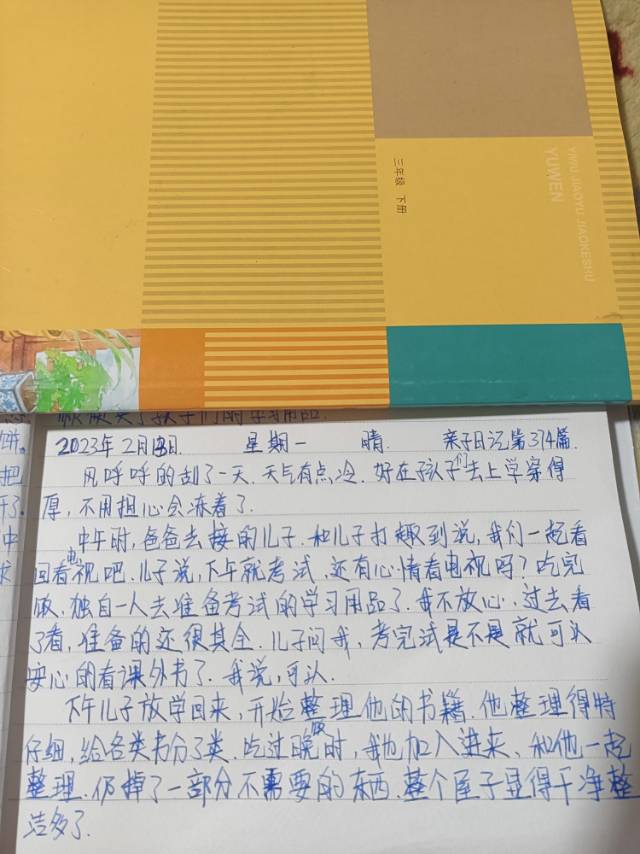 YIWU JIAOYU JIAOKESHU
YUWEN
三年级 下册
2023年2月13日 星期一 晴 亲子日记第314篇
风呼呼的刮了一天.天气有点冷.好在孩子们去上学穿得
厚,不用担心会冻着了.
中午时,爸爸去接的儿子.和儿子打趣到说,我们一起看
回看电视吧.儿子说,下午就考试,还有心情看电视吗?吃完
饭,独自一人去准备考试的学习用品了.我不放心,过去看
了看,准备的还很其全.儿子问我,考完试是不是就可以
安心的看课外书了.我说,可以.
下午儿子放学回来,开始整理他的书籍.他整理得特
仔细,给各类书分了类.吃过晚饭时,我也加入进来,和他一起
整理.仍掉了一部分不需要的东西.整个屋子显得干净整
洁多了.
饼。
把
开了.
中
求